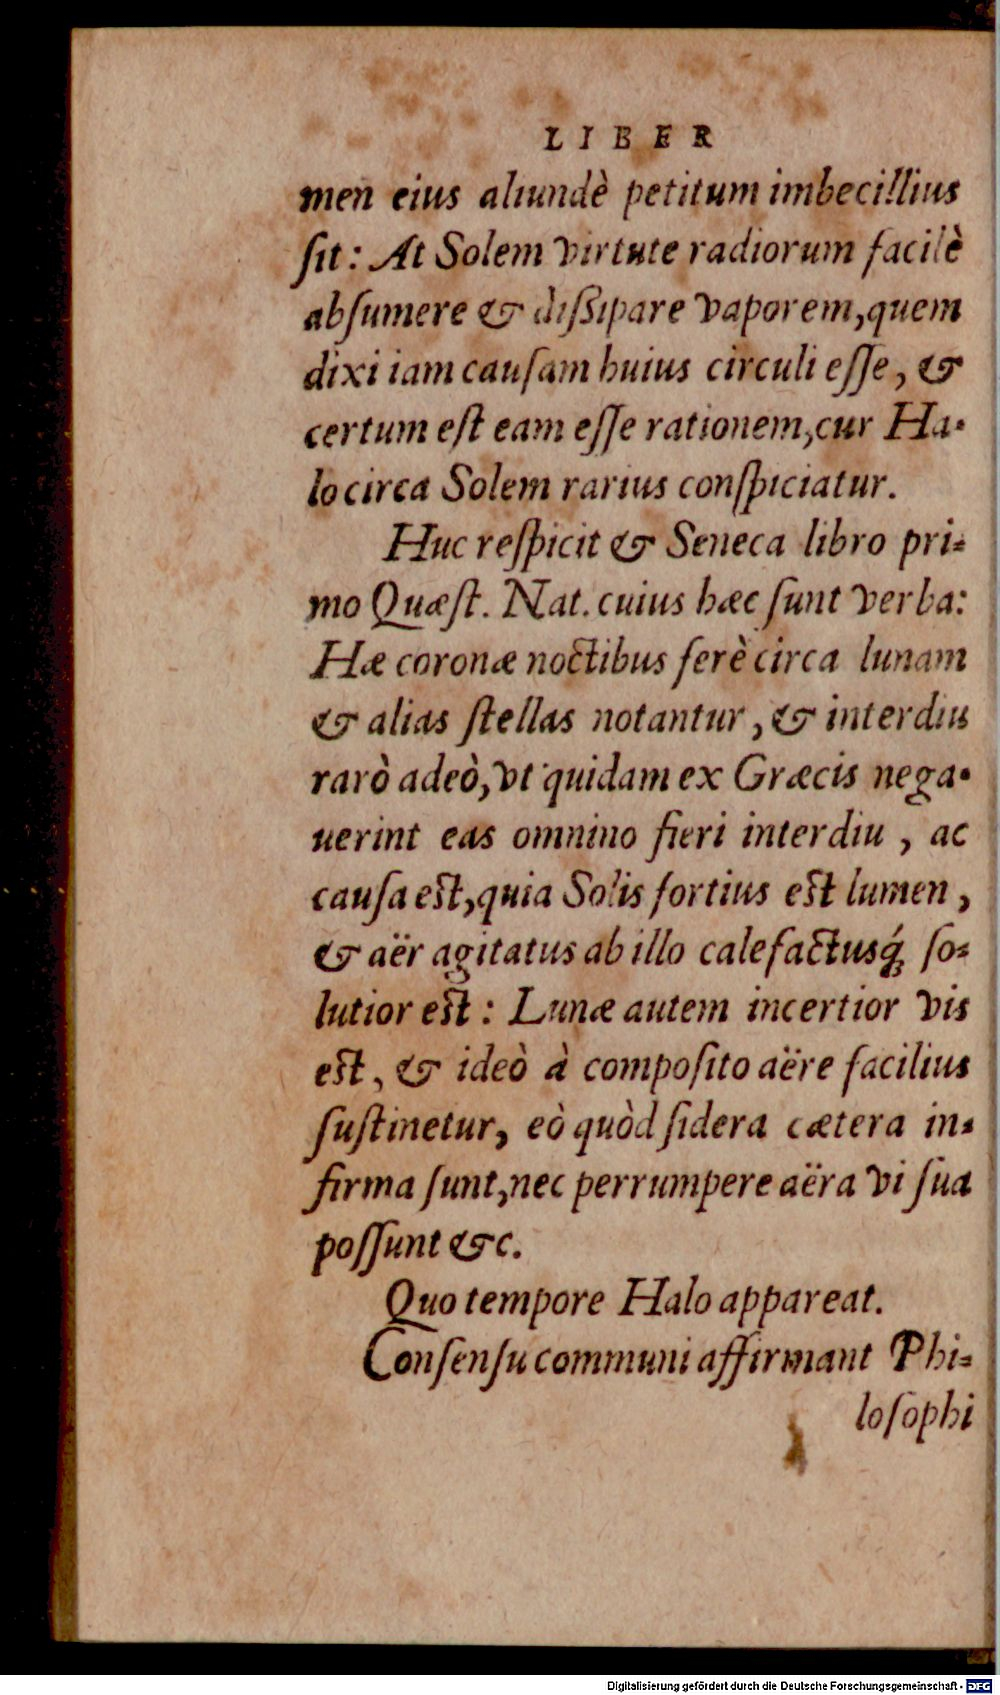 LIBER
men eius aliundè petitum imbecillius
ſit: At Solem virtute radiorum facilè
abſumere & diſsipare vaporem, quem
dixi iam cauſam huius circuli eſſe, &
certum eſt eam eſſe rationem, cur Ha-
lo circa Solem rarius conſpiciatur.
Huc reſpicit & Seneca libro pri-
mo Quæſt. Nat. cuius hæc ſunt verba:
Hæ coronæ noctibus ferè circa lunam
& alias ſtellas notantur, & interdiu
rarò adeò, vt quidam ex Græcis nega-
uerint eas omnino fieri interdiu, ac
cauſa est, quia Solis fortius est lumen,
& aër agitatus ab illo calefactusq́; ſo-
lutior est: Lunæ autem incertior vis
est, & ideò à compoſito aëre facilius
ſuſtinetur, eò quòd ſidera cætera in-
firma ſunt, nec perrumpere aëra vi ſua
poſſunt &c.
Quo tempore Halo appareat.
Conſenſu communi affirmant Phi-
loſophi
Digitalisierung gefördert durch die Deutsche Forschungsgemeinschaft - DFG